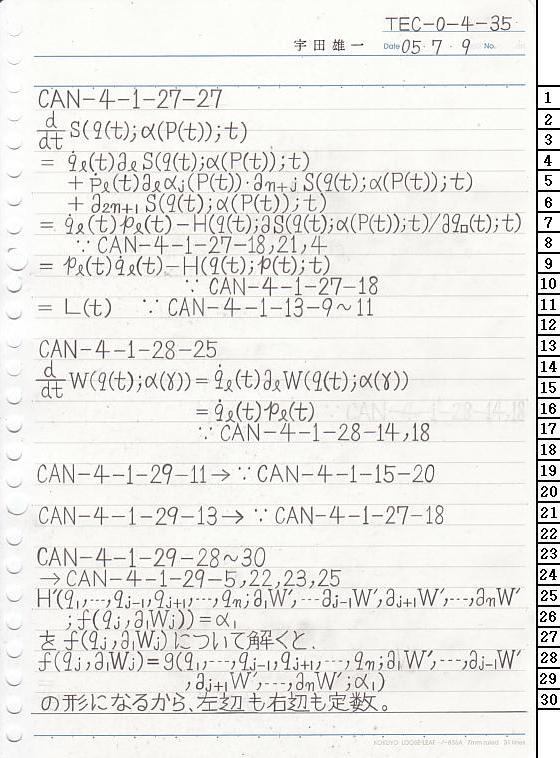 TEC-0-4-35
宇田雄一 Date 05・7・9 No.
CAN-4-1-27-27
d/dt S(q(t);α(P(t));t)
= q̇ℓ(t)∂ℓS(q(t);α(P(t));t)
+ṗℓ(t)∂ℓαj(P(t))・∂n+jS(q(t);α(P(t));t)
+∂2n+1S(q(t);α(P(t));t)
= q̇ℓ(t)pℓ(t)-H(q(t);∂S(q(t);α(P(t));t)/∂q□(t);t)
∵ CAN-4-1-27-18,21,4
= pℓ(t)q̇ℓ(t)-H(q(t);p(t);t)
∵ CAN-4-1-27-18
= L(t) ∵ CAN-4-1-13-9~11
CAN-4-1-28-25
d/dt W(q(t);α(γ))=q̇ℓ(t)∂ℓW(q(t);α(γ))
=q̇ℓ(t)pℓ(t)
∵ CAN-4-1-28-14,18
CAN-4-1-29-11→∵CAN-4-1-15-20
CAN-4-1-29-13→∵CAN-4-1-27-18
CAN-4-1-29-28~30
→CAN-4-1-29-5,22,23,25
H'(q₁,…,qj-1,qj+1,…,qn;∂₁W',…∂j-1W',∂j+1W',…,∂nW'
;f(qj,∂₁Wj))=α₁
を f(qj,∂₁Wj)について解くと、
f(qj,∂₁Wj)=g(q₁,…,qj-1,qj+1,…,qn;∂₁W',…,∂j-1W'
,∂j+1W',…,∂nW';α₁)
の形になるから、左辺も右辺も定数。
KOKUYO LOOSE-LEAF ノ-836A 7mm ruled 31 lines
1
2
3
4
5
6
7
8
9
10
11
12
13
14
15
16
17
18
19
20
21
22
23
24
25
26
27
28
29
30